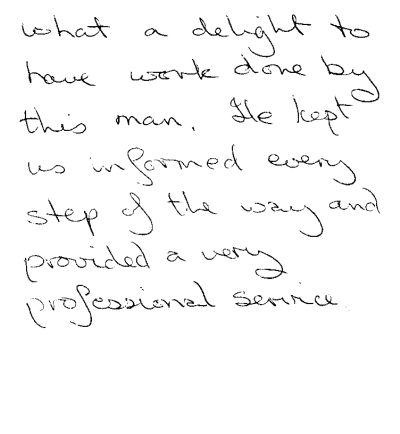 what a delight to
have work done by
this man. He kept
us informed every
step of the way and
provided a very
professional service